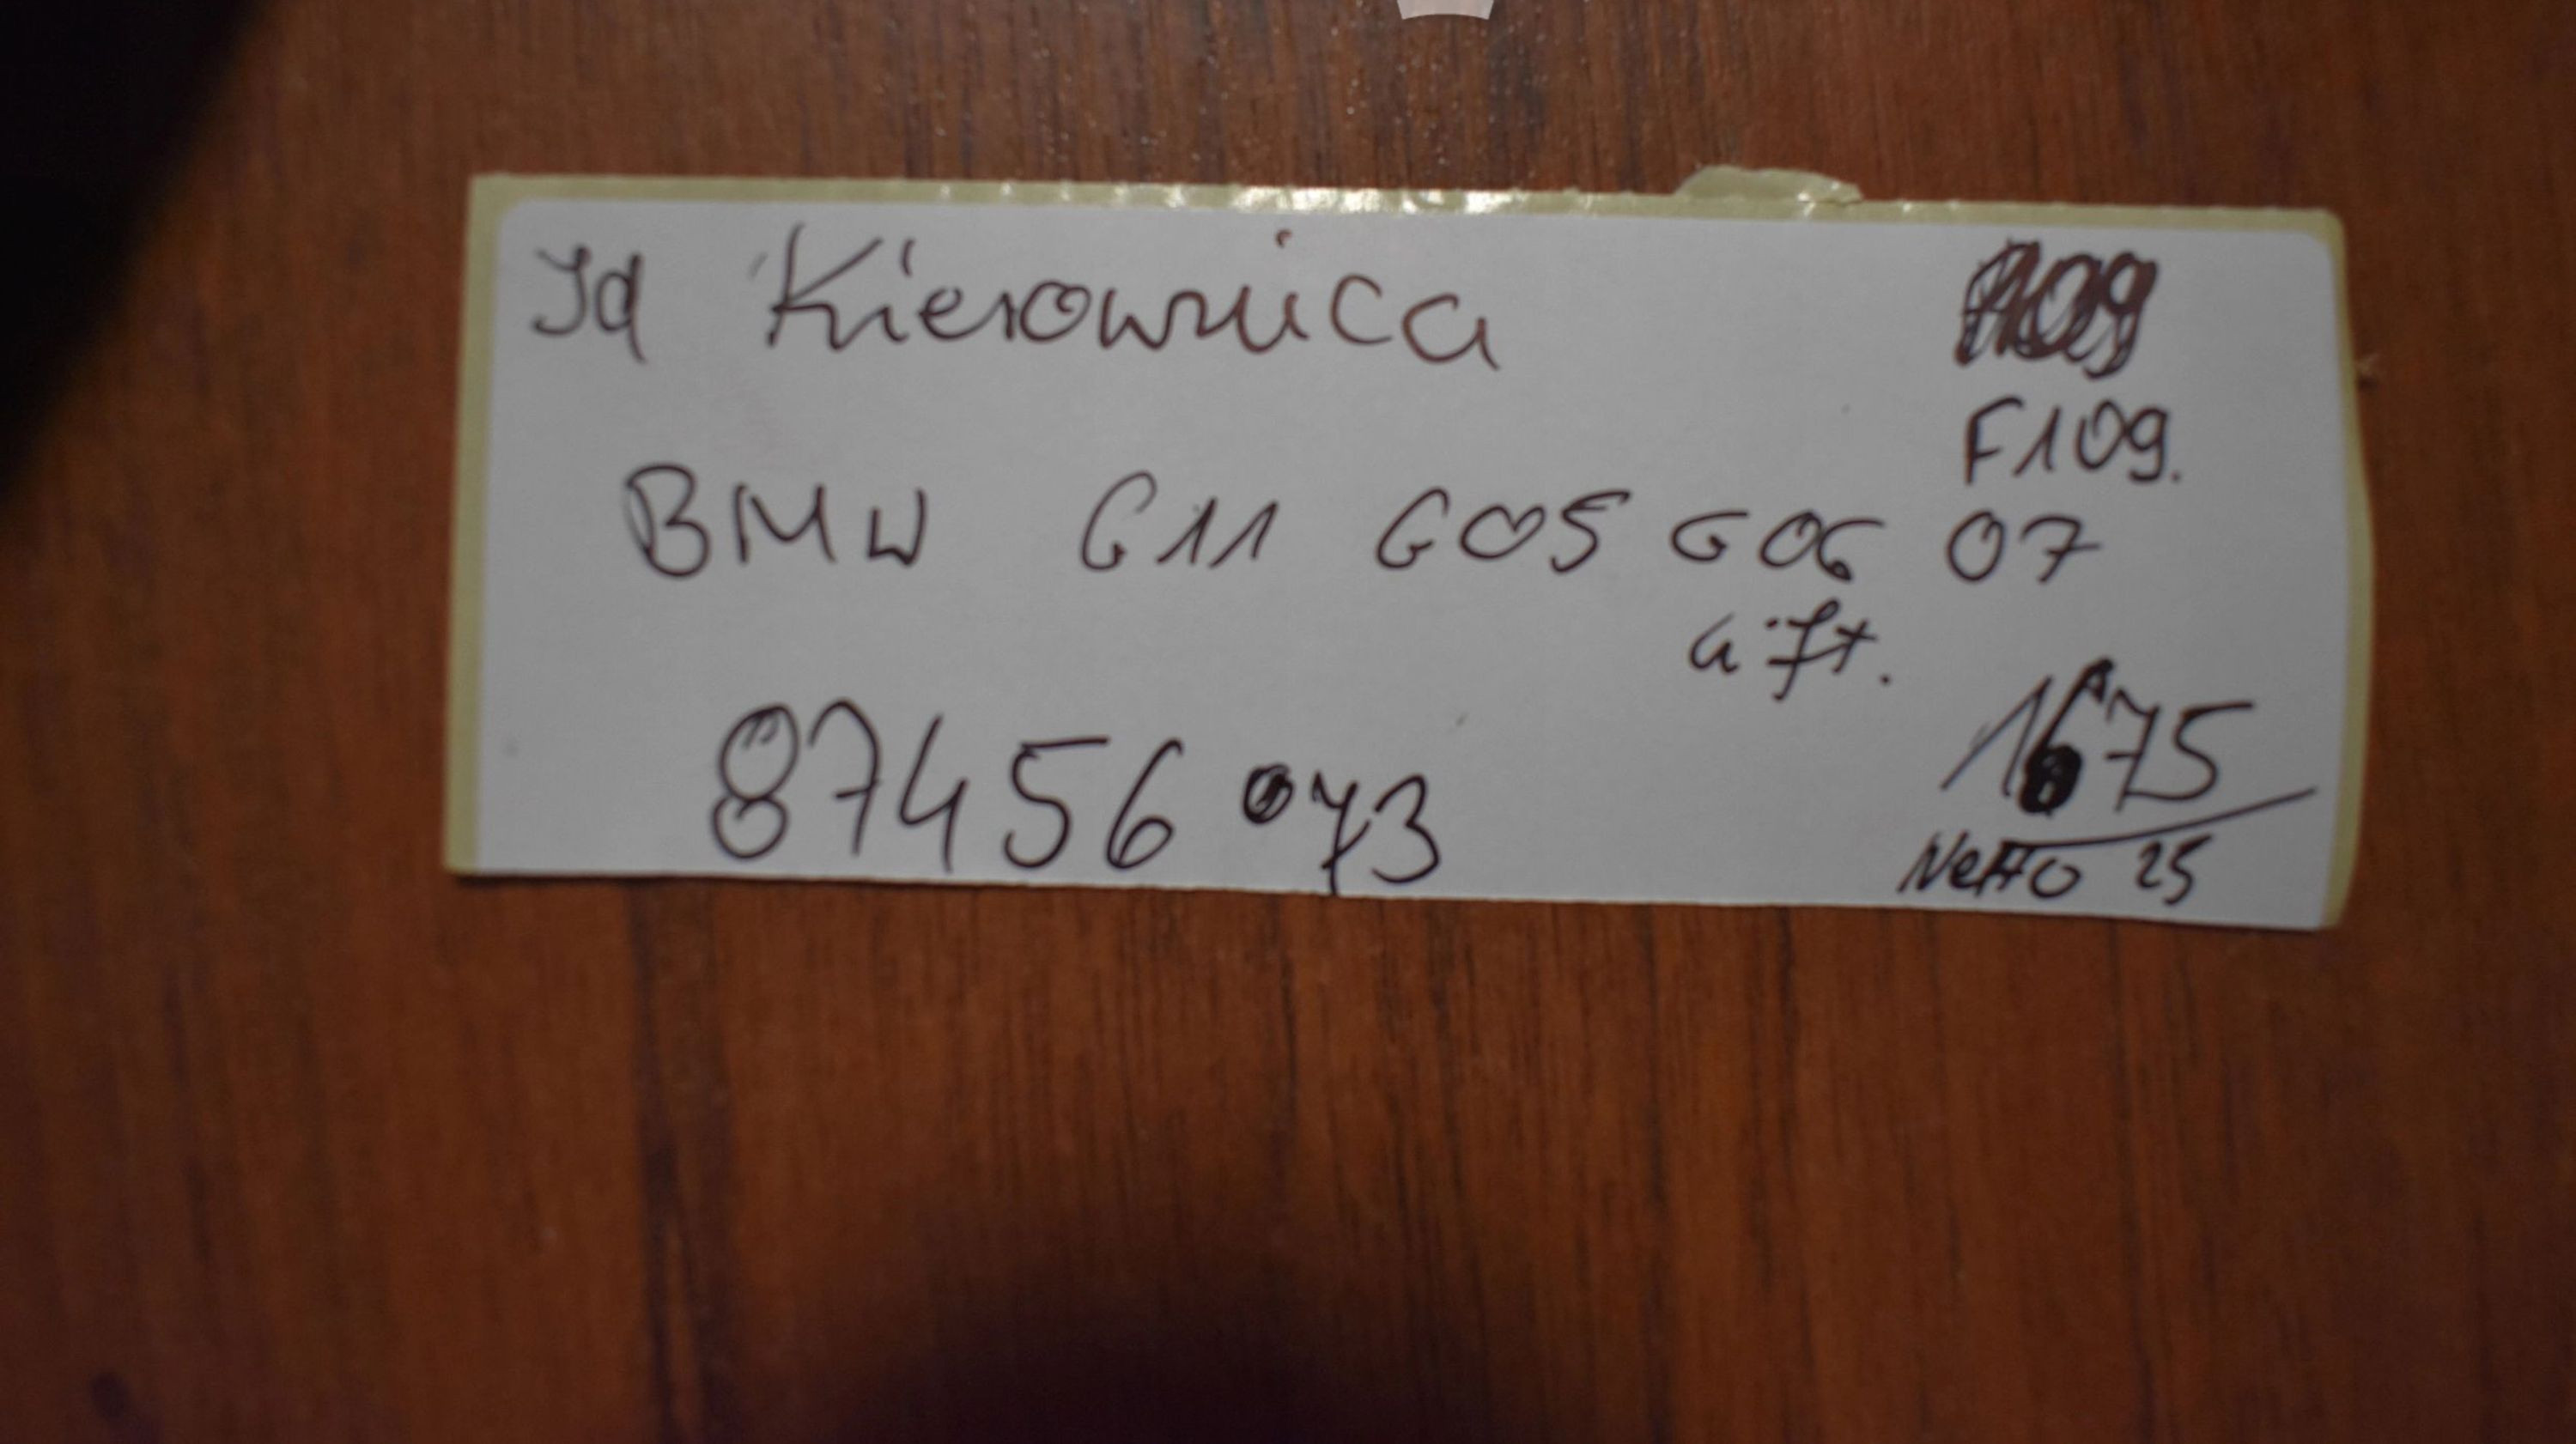 Jd Kierownica
F109.
BMW G11 G05 G06 07
Lift.
87456073
1675
Netto 25